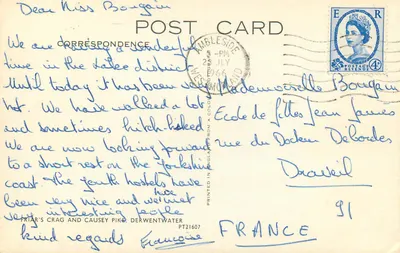 Dear Miss Bougain
POST CARD
CORRESPONDENCE
We are having a wonderful
time in the Lake district
Until today it has been very
hot. We have walked a lot
and sometimes hitch-hiked
We are now looking forward
to a short rest on the Yorkshire
coast. The youth hostels have
been very nice and we've met
very interesting people
FRIAR'S CRAG AND CAUSEY PIKE DERWENTWATER
PT21607
kind regards Françoise
PRINTED IN
AMBLESIDE
3 - PM
25 JLY
1966
WESTMORLAND
E R
4D
Mademoiselle Bougain
Ecole de filles Jean Jaurès
rue du Docteur
Draveil
91
FRANCE